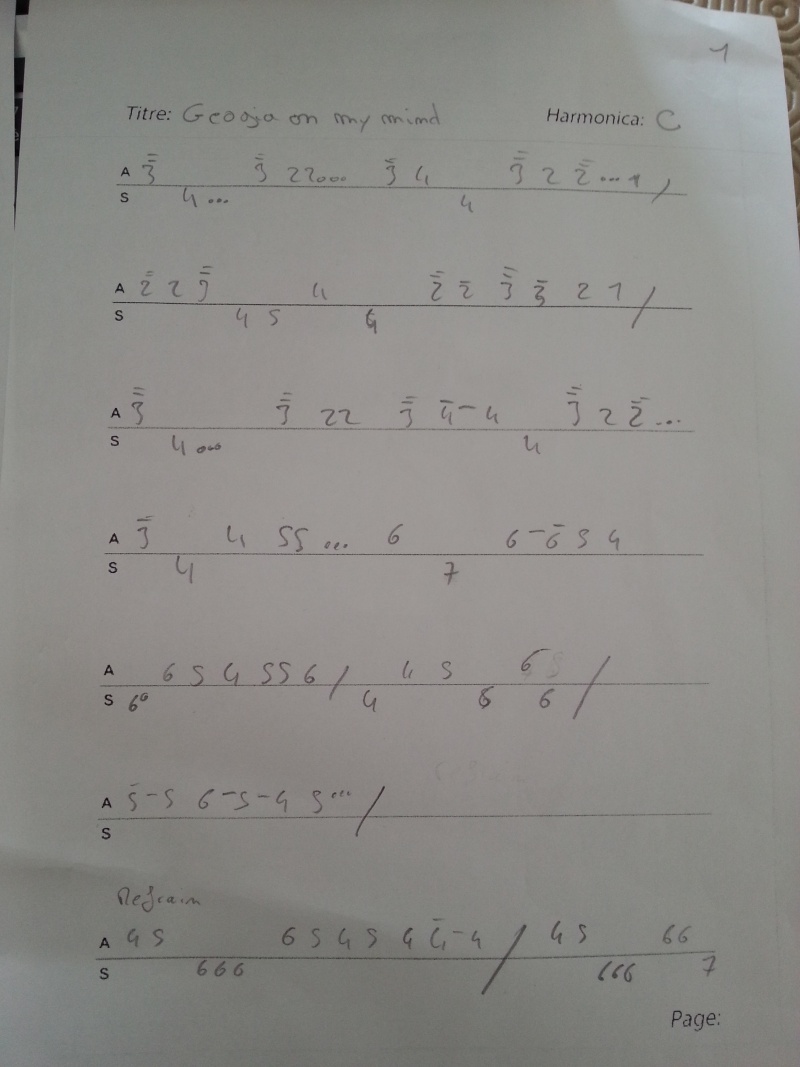 1
Titre: Georja on my mind Harmonica: C
A 3̿ 3̿ 22ooo 3̿ 4 3̿ 2 2̿ ... 1 /
S 4... 4
A 2̿ 2 3̿ 4 2̿ 2̄ 3̿ 3̄ 2 1 /
S 4 5 4
A 3̿ 3̿ 22 3̿ 4̄-4 3̿ 2 2̿ ...
S 4ooo 4
A 3̿ 4 55... 6 6-6̄ 5 4
S 4 7
A 6 5 4 55 6 / 4 5 6 /
S 66 4 6 6
A 5̄-5 6-5-4 5... /
S
Refrain
A 4 5 6 5 4 5 4 4̄-4 / 4 5 66
S 666 666 7
Page: